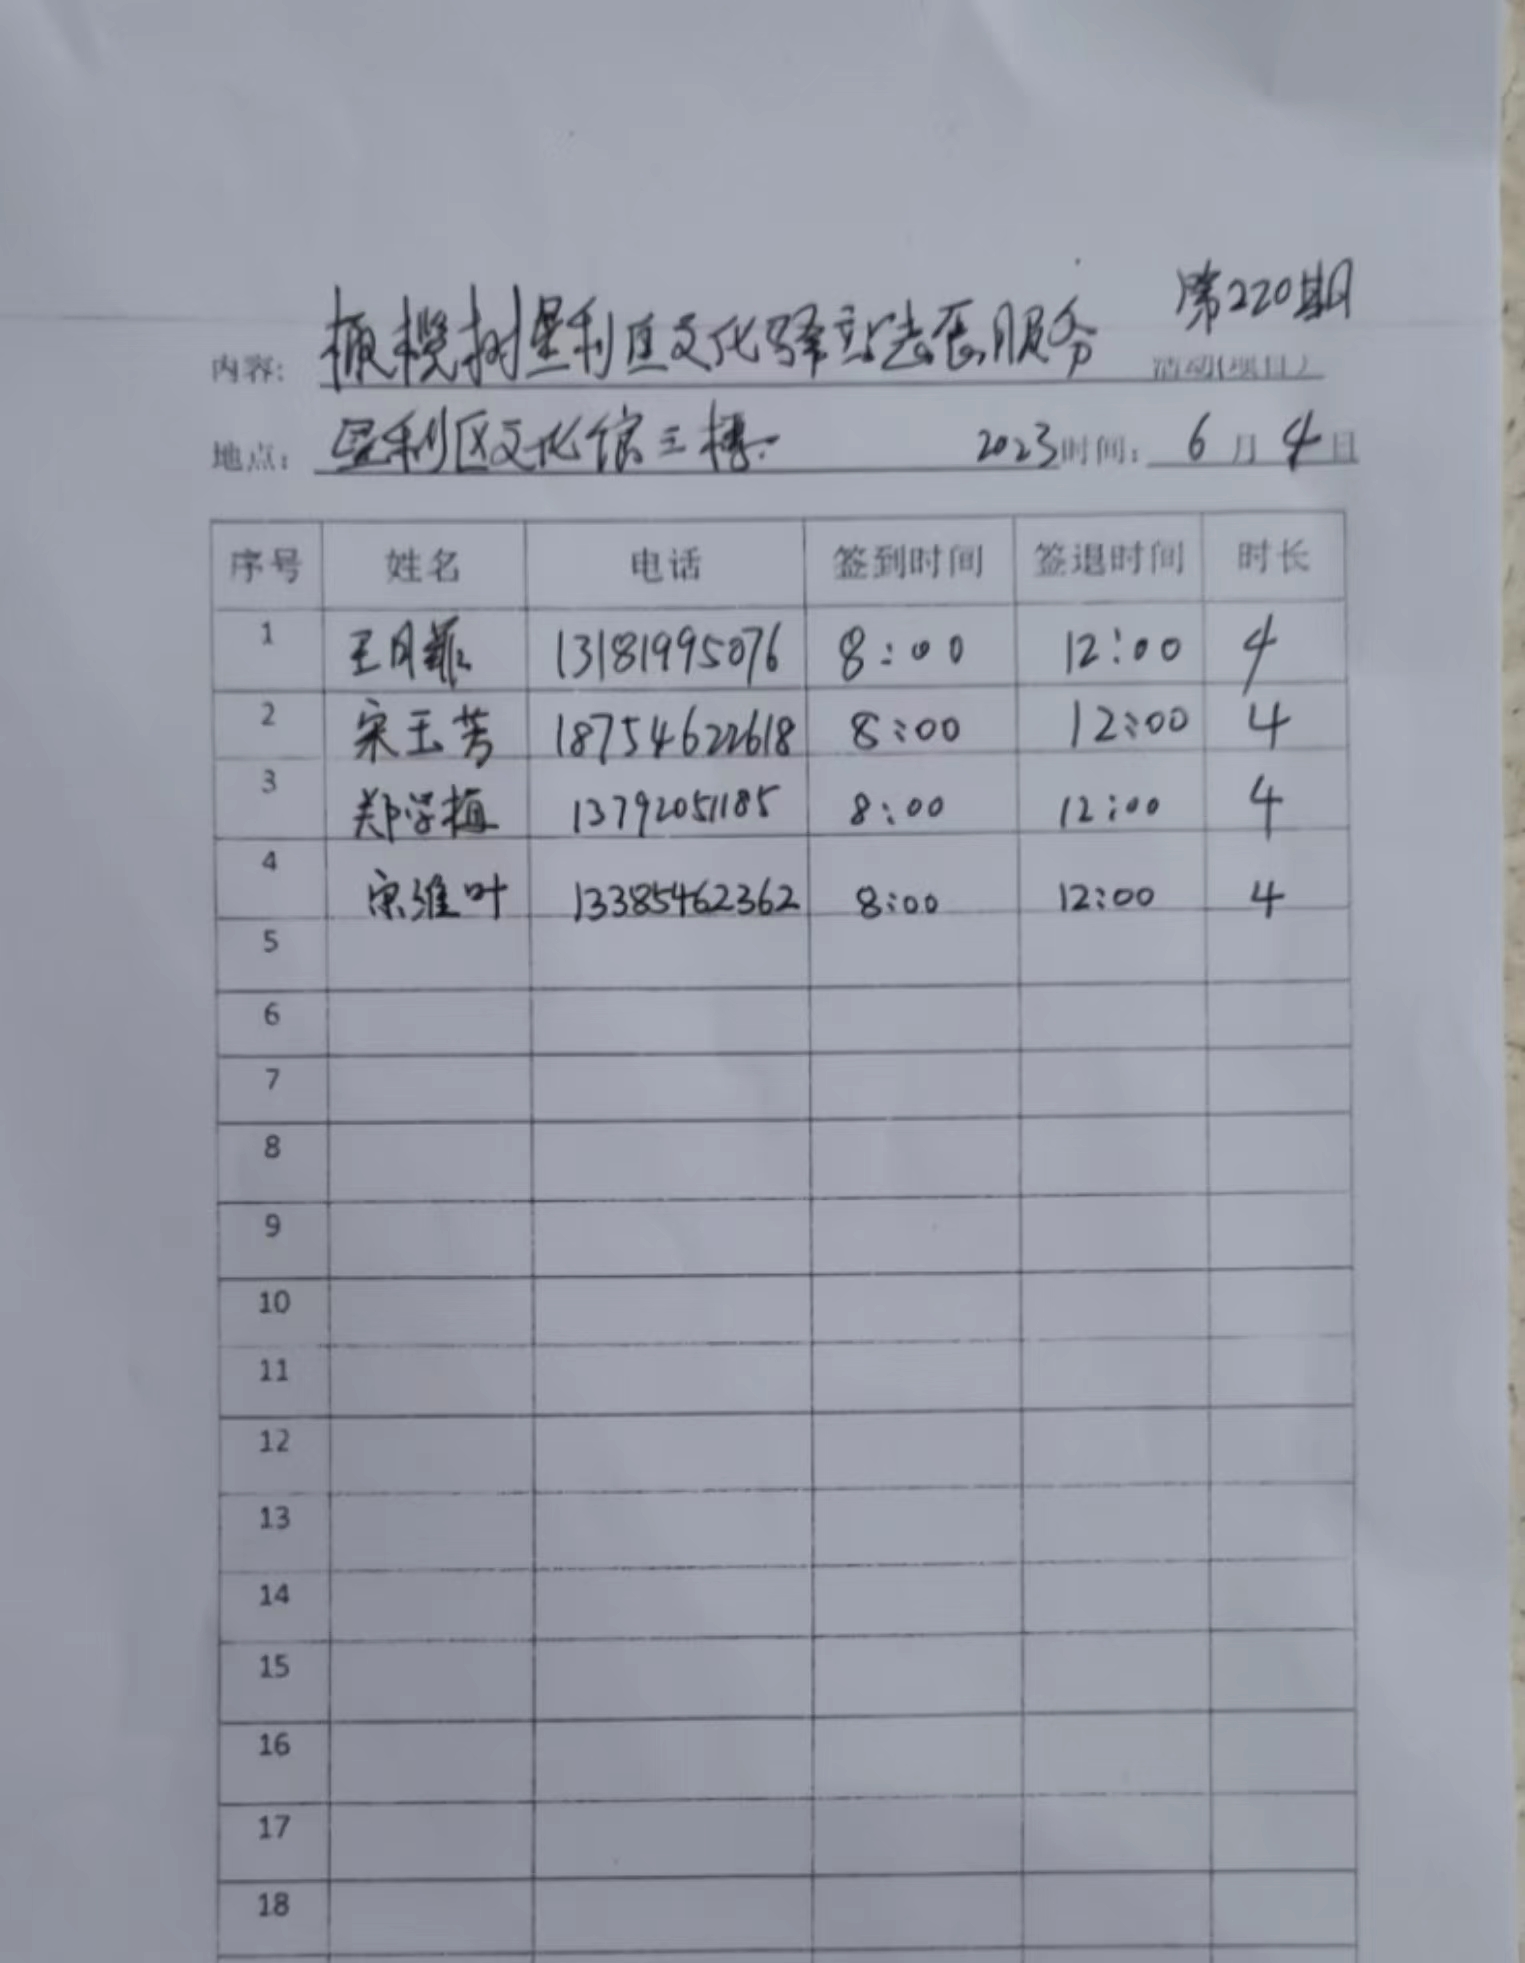 第220期
内容: 橄榄树垦利区文化驿站志愿服务 活动(项目)
地点: 垦利区文化馆三楼. 2023时间: 6月4日
序号 姓名 电话 签到时间 签退时间 时长
1 王月 13181995076 8:00 12:00 4
2 宋玉芳 18754622618 8:00 12:00 4
3 郑学梅 13792051185 8:00 12:00 4
4 宋维叶 13385462362 8:00 12:00 4
5
6
7
8
9
10
11
12
13
14
15
16
17
18